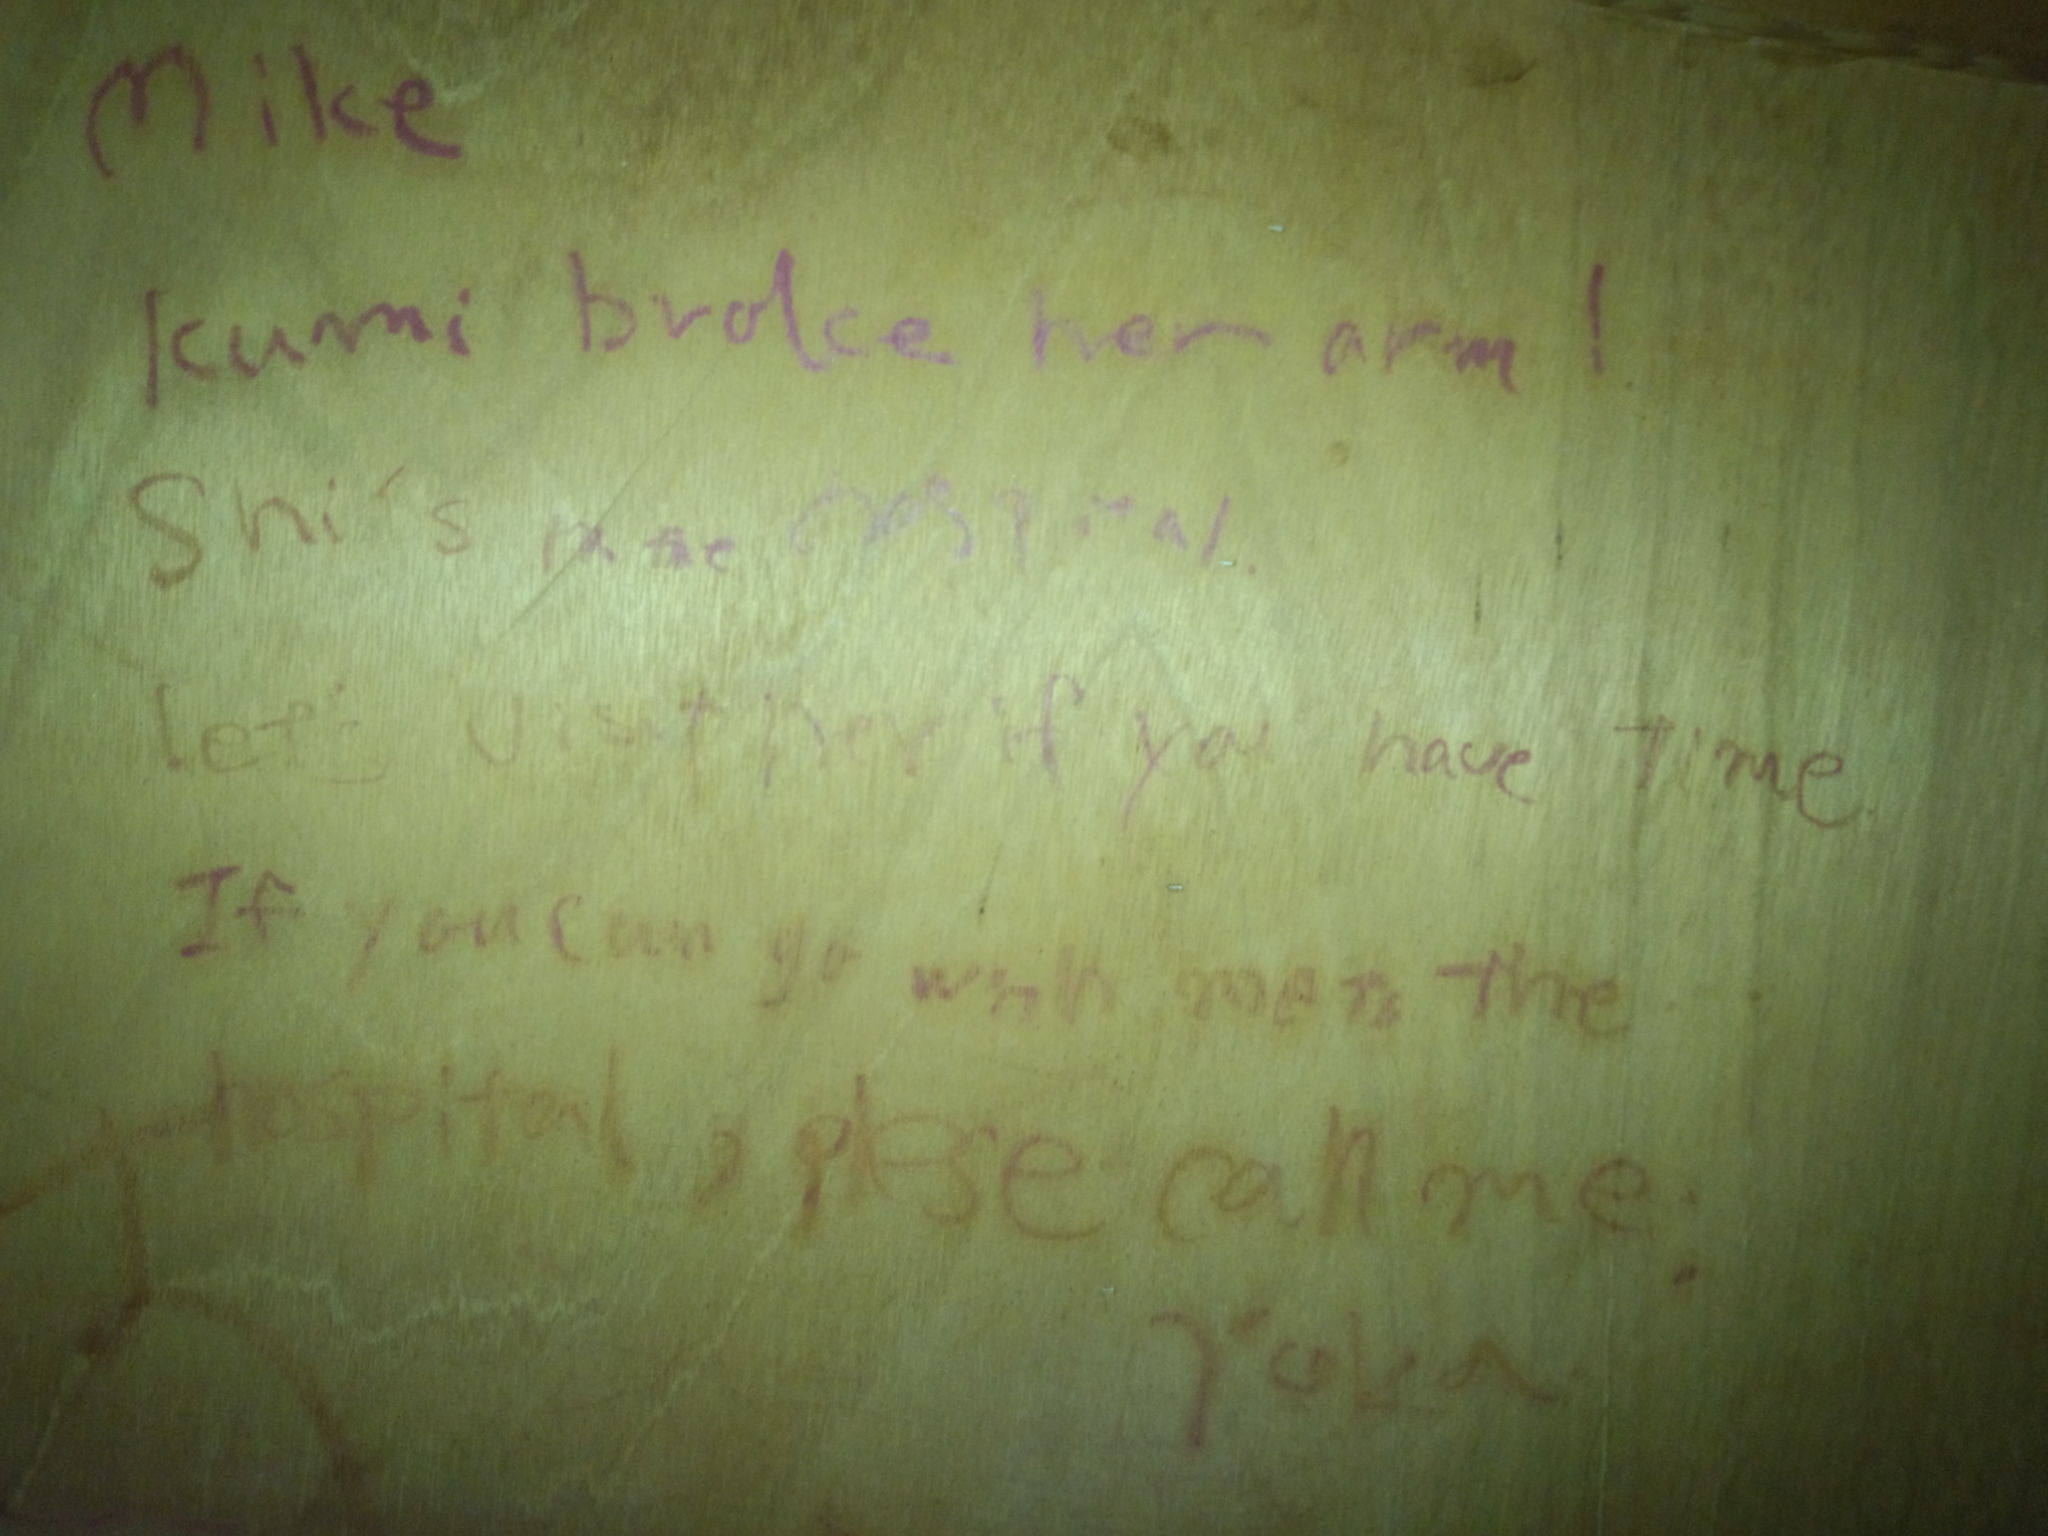 Mike
Kumi broke her arm!
Shi's in the hospital.
Let's visit her if you have time.
If you can go with me to the
hospital, plese call me.